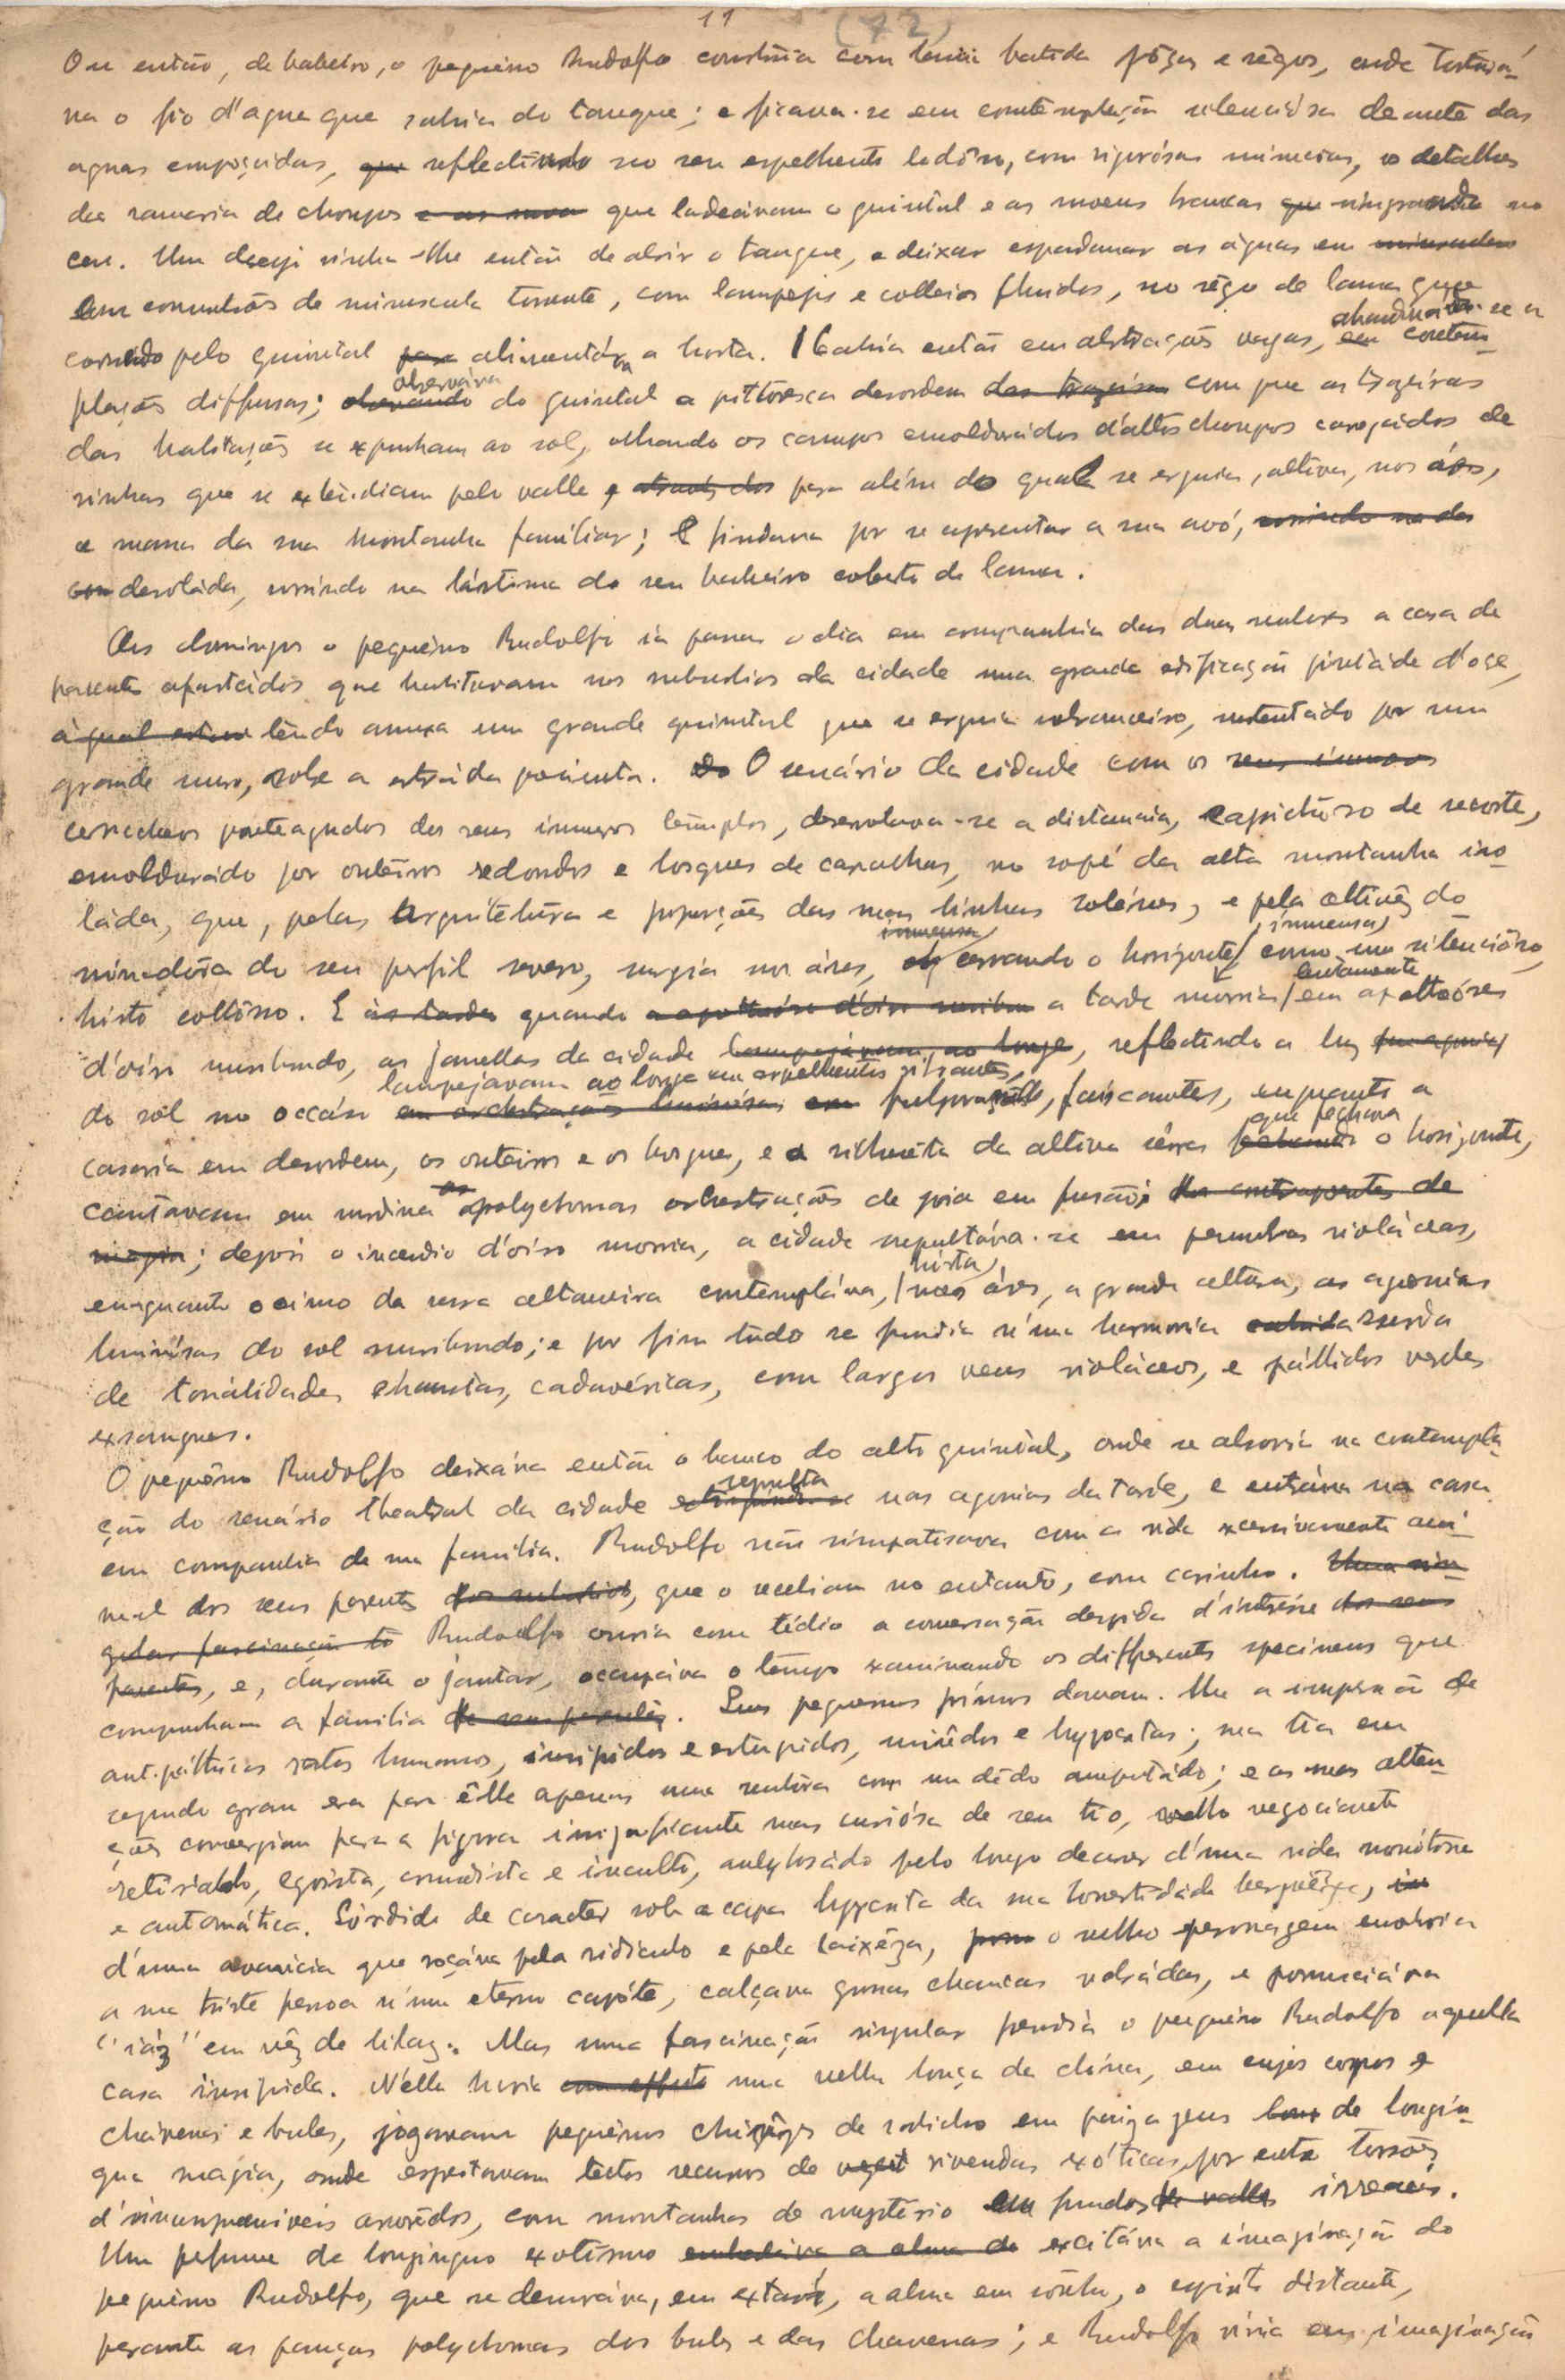 11 (72)
Ou então, de babeiro, o pequeno Rudolfo construia com lama batida póças e rêgos, onde tortuá-
va o fio d'agua que sahia do tanque; e ficava-se em contemplação silenciósa deante das
aguas empoçadas, que reflectindo no seu espelhento lodôso, com rigorósas minucias, os detalhes
da ramaria de choupos e as nuve que ladeavam o quintal e as nuvens brancas que vingrando no
ceu. Um desejo vinha-lhe então de abrir o tanque, e deixar espadanar as águas em
em convulsões de minuscula torrente, com lampejos e colleios fluidos, no rêgo de lama que
correndo pelo quintal para alimentáva a horta. Cahia então em abstracções vagas, em abandonáva-se a contem-
plações diffusas; observando observáva do quintal a pittoresca desordem das trazeiras com que as trazeiras
das habitações se expunham ao sol, olhando os campos emoldurados d'altos choupos carregados de
vinhas que se extendiam pelo valle, e através dos para além do qual se erguia, altiva, nos áres,
a massa da sua montanha familiar; E findava por se apresentar a sua avó, sorrindo na des
con desolada, sorrindo na lástima do seu babeiro coberto de lama.
Aos domingos o pequeno Rudolfo ia passar o dia em companhia das duas senhoras a casa de
parentes afastados que habitavam nos suburbios da cidade uma grande edificação pintada d'oca,
á qual estava tendo anexa um grande quintal que se erguia sobranceiro, sustentado por um
grande muro, sobre a estrada poeirenta. Do O scenário da cidade com os seus innumeros
corucheos ponteagudos dos seus innumeros templos, desenrolava-se a distancia, capichôso de recorte,
emoldurado por outeiros redondos e bosques de carvalhos, no sopé da alta montanha iso-
lada, que, pelas arquitetura e proporções das suas linhas solénes, e pela altivez do-
minadôra do seu perfil severo, surgia nos áres, immensa cerrando o horizonte, immensa, como um silencióso,
histo collôsso. E ás tardes quando a apotheóse d'oiro moribun a tarde morria lentamente em apotheóses
d'oiro moribundo, as janellas da cidade lampejavam, ao longe, reflectindo a luz em agonia
do sol no occáso em orchestrações luminósas em lampejavam ao longe em espelhentos vibrantes, fulgurações, faiscantes, emquanto a
casaria em desordem, os outeiros e os bosques, e a silhueta da altiva serra fechando que fechava o horizonte,
cantavam em surdina as polychromas orchestrações de joia em fusão da contrapontos de
magia; depois o incendio d'oiro morria, a cidade sepultáva-se em penumbras violáceas,
emquanto o cimo da serra altaneira contempláva, hirta, nos áres, a grande altura, as agonias
luminósas do sol moribundo; e por fim tudo se fundia n'uma harmonia surda
de tonalidades exhaustas, cadavéricas, com largos veus violáceos, e pállidos verdes
exsangues.
O pequêno Rudolfo deixáva então o banco do alto quintal, onde se absorvia na contempla-
ção do scenário theatral da cidade extinguindo-se sepulta nas agonias da tarde, e entráva na casa
em companhia de sua familia. Rudolfo não simpatisava com a vida excessivamente ani-
mal dos seus parentes dos suburbios, que o recebiam no entanto, com carinho. Uma sin-
gular fascinação to Rudolfo ouvia com tédio a conversação despida d'interesse dos seus
parentes, e, durante o jantar, occupáva o tempo examinando os differentes specimens que
compunham a familia de seus parentes. Seus pequenos primos davam-lhe a impressão de
antipáthicos ratos humanos, insipidos e estupidos, miúdos e hypocritas; sua tia em
segundo grau era para êlle apenas uma senhora com um dêdo amputádo; e as suas atten-
ções convergiam para a figura insignificante mas curiósa de seu tio, velho negociante
retirado, egoista, comodista e inculto, ankylosádo pelo longo decorrer d'uma vida monótona
e automática. Sórdido de caracter sob a capa hypocrita da sua honestidade burguêza, in
d'uma avaricia que roçáva pelo ridiculo e pela baixêza, porem o velho personagem envolvia
a sua triste pessoa n'um eterno capóte, calçava grossas chancas rebádas, e pronunciáva
"iáz" em vêz de lilaz. Mas uma fascinação singular prendia o pequeno Rudolfo aquella
casa insipida. N'ella havia com effeito uma velha louça da china, em cujos corpos e
chávenas e bules, jogavam pequênos chinêzes de rabicho em paizagens de longin-
qua magia, onde espreitavam tectos recurvos de viveudas exóticas, por entre torsões
d'inumpraniveis arvoredos, com montanhas de mysterio em fundos de valles irreaes.
Um perfume de longinquo exotismo embaláva a alma de excitáva a imaginação do
pequêno Rudolfo, que se demoráva, em extase, a alma em sonho, o espirito distante,
perante as panças polychromas dos bules e das chavenas; e Rudolfo vivia em imaginação